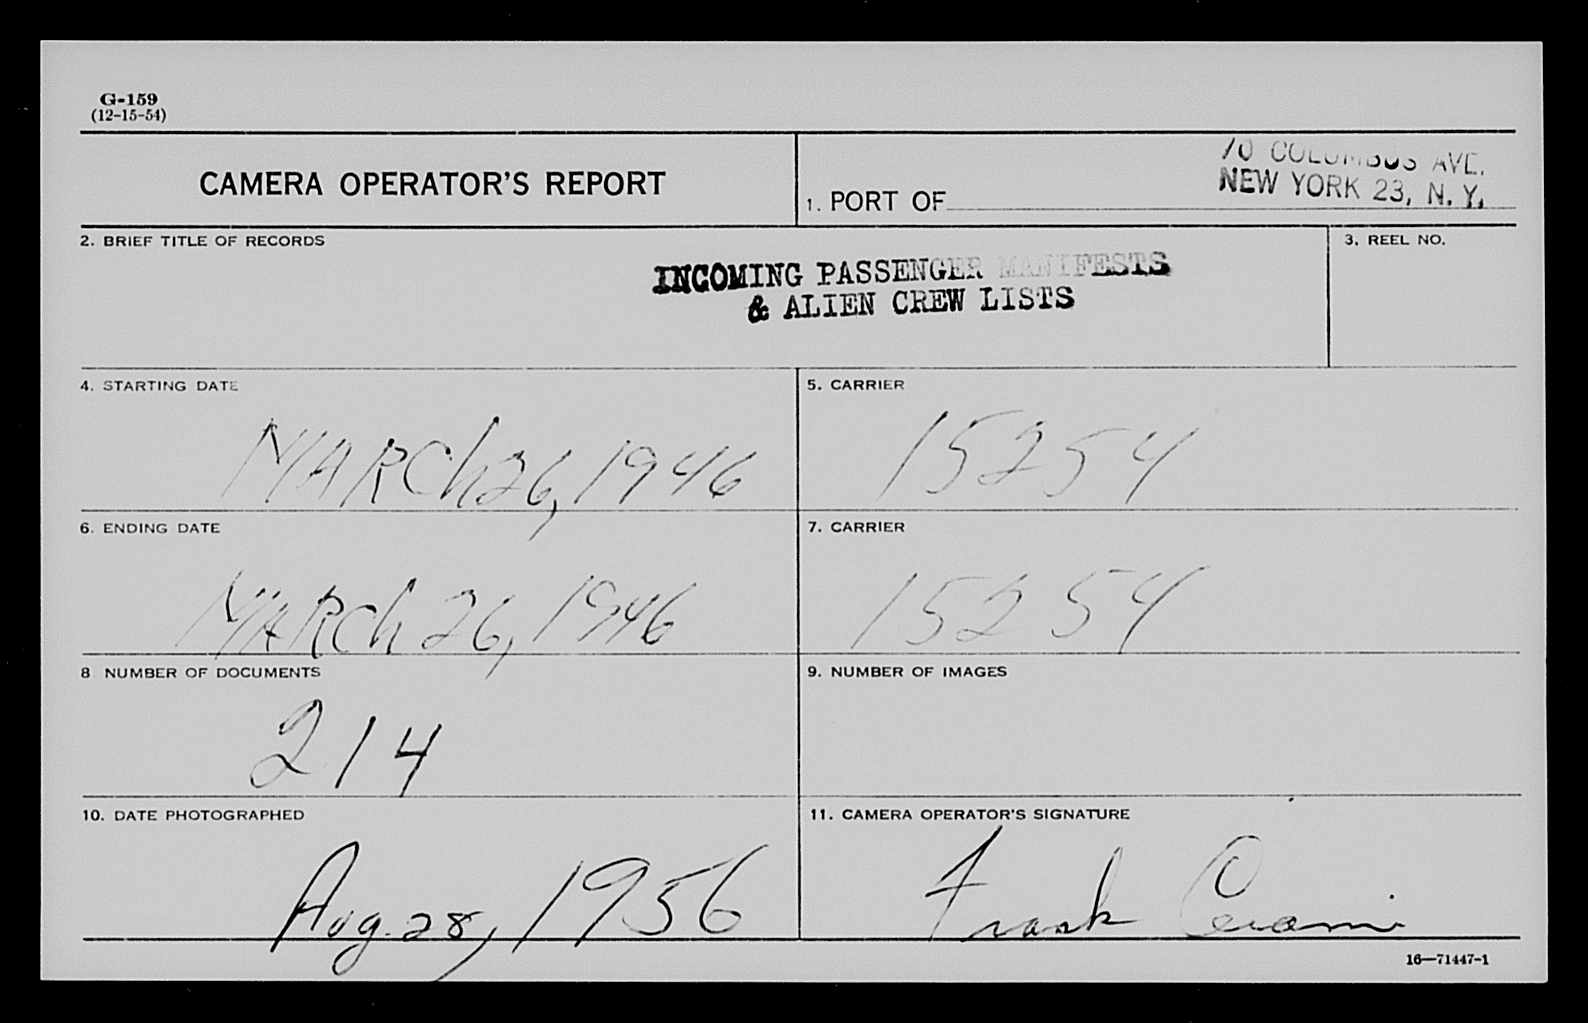 G-159
(12-15-54)
CAMERA OPERATOR'S REPORT
70 COLUMBUS AVE.
NEW YORK 23, N. Y.
1. PORT OF
2. BRIEF TITLE OF RECORDS
3. REEL NO.
INCOMING PASSENGER MANIFESTS
& ALIEN CREW LISTS
4. STARTING DATE
MARCh 26, 1946
5. CARRIER
15254
6. ENDING DATE
MARCh 26, 1946
7. CARRIER
15254
8 NUMBER OF DOCUMENTS
214
9. NUMBER OF IMAGES
10. DATE PHOTOGRAPHED
Aug. 28, 1956
11. CAMERA OPERATOR'S SIGNATURE
Frank
16—71447-1